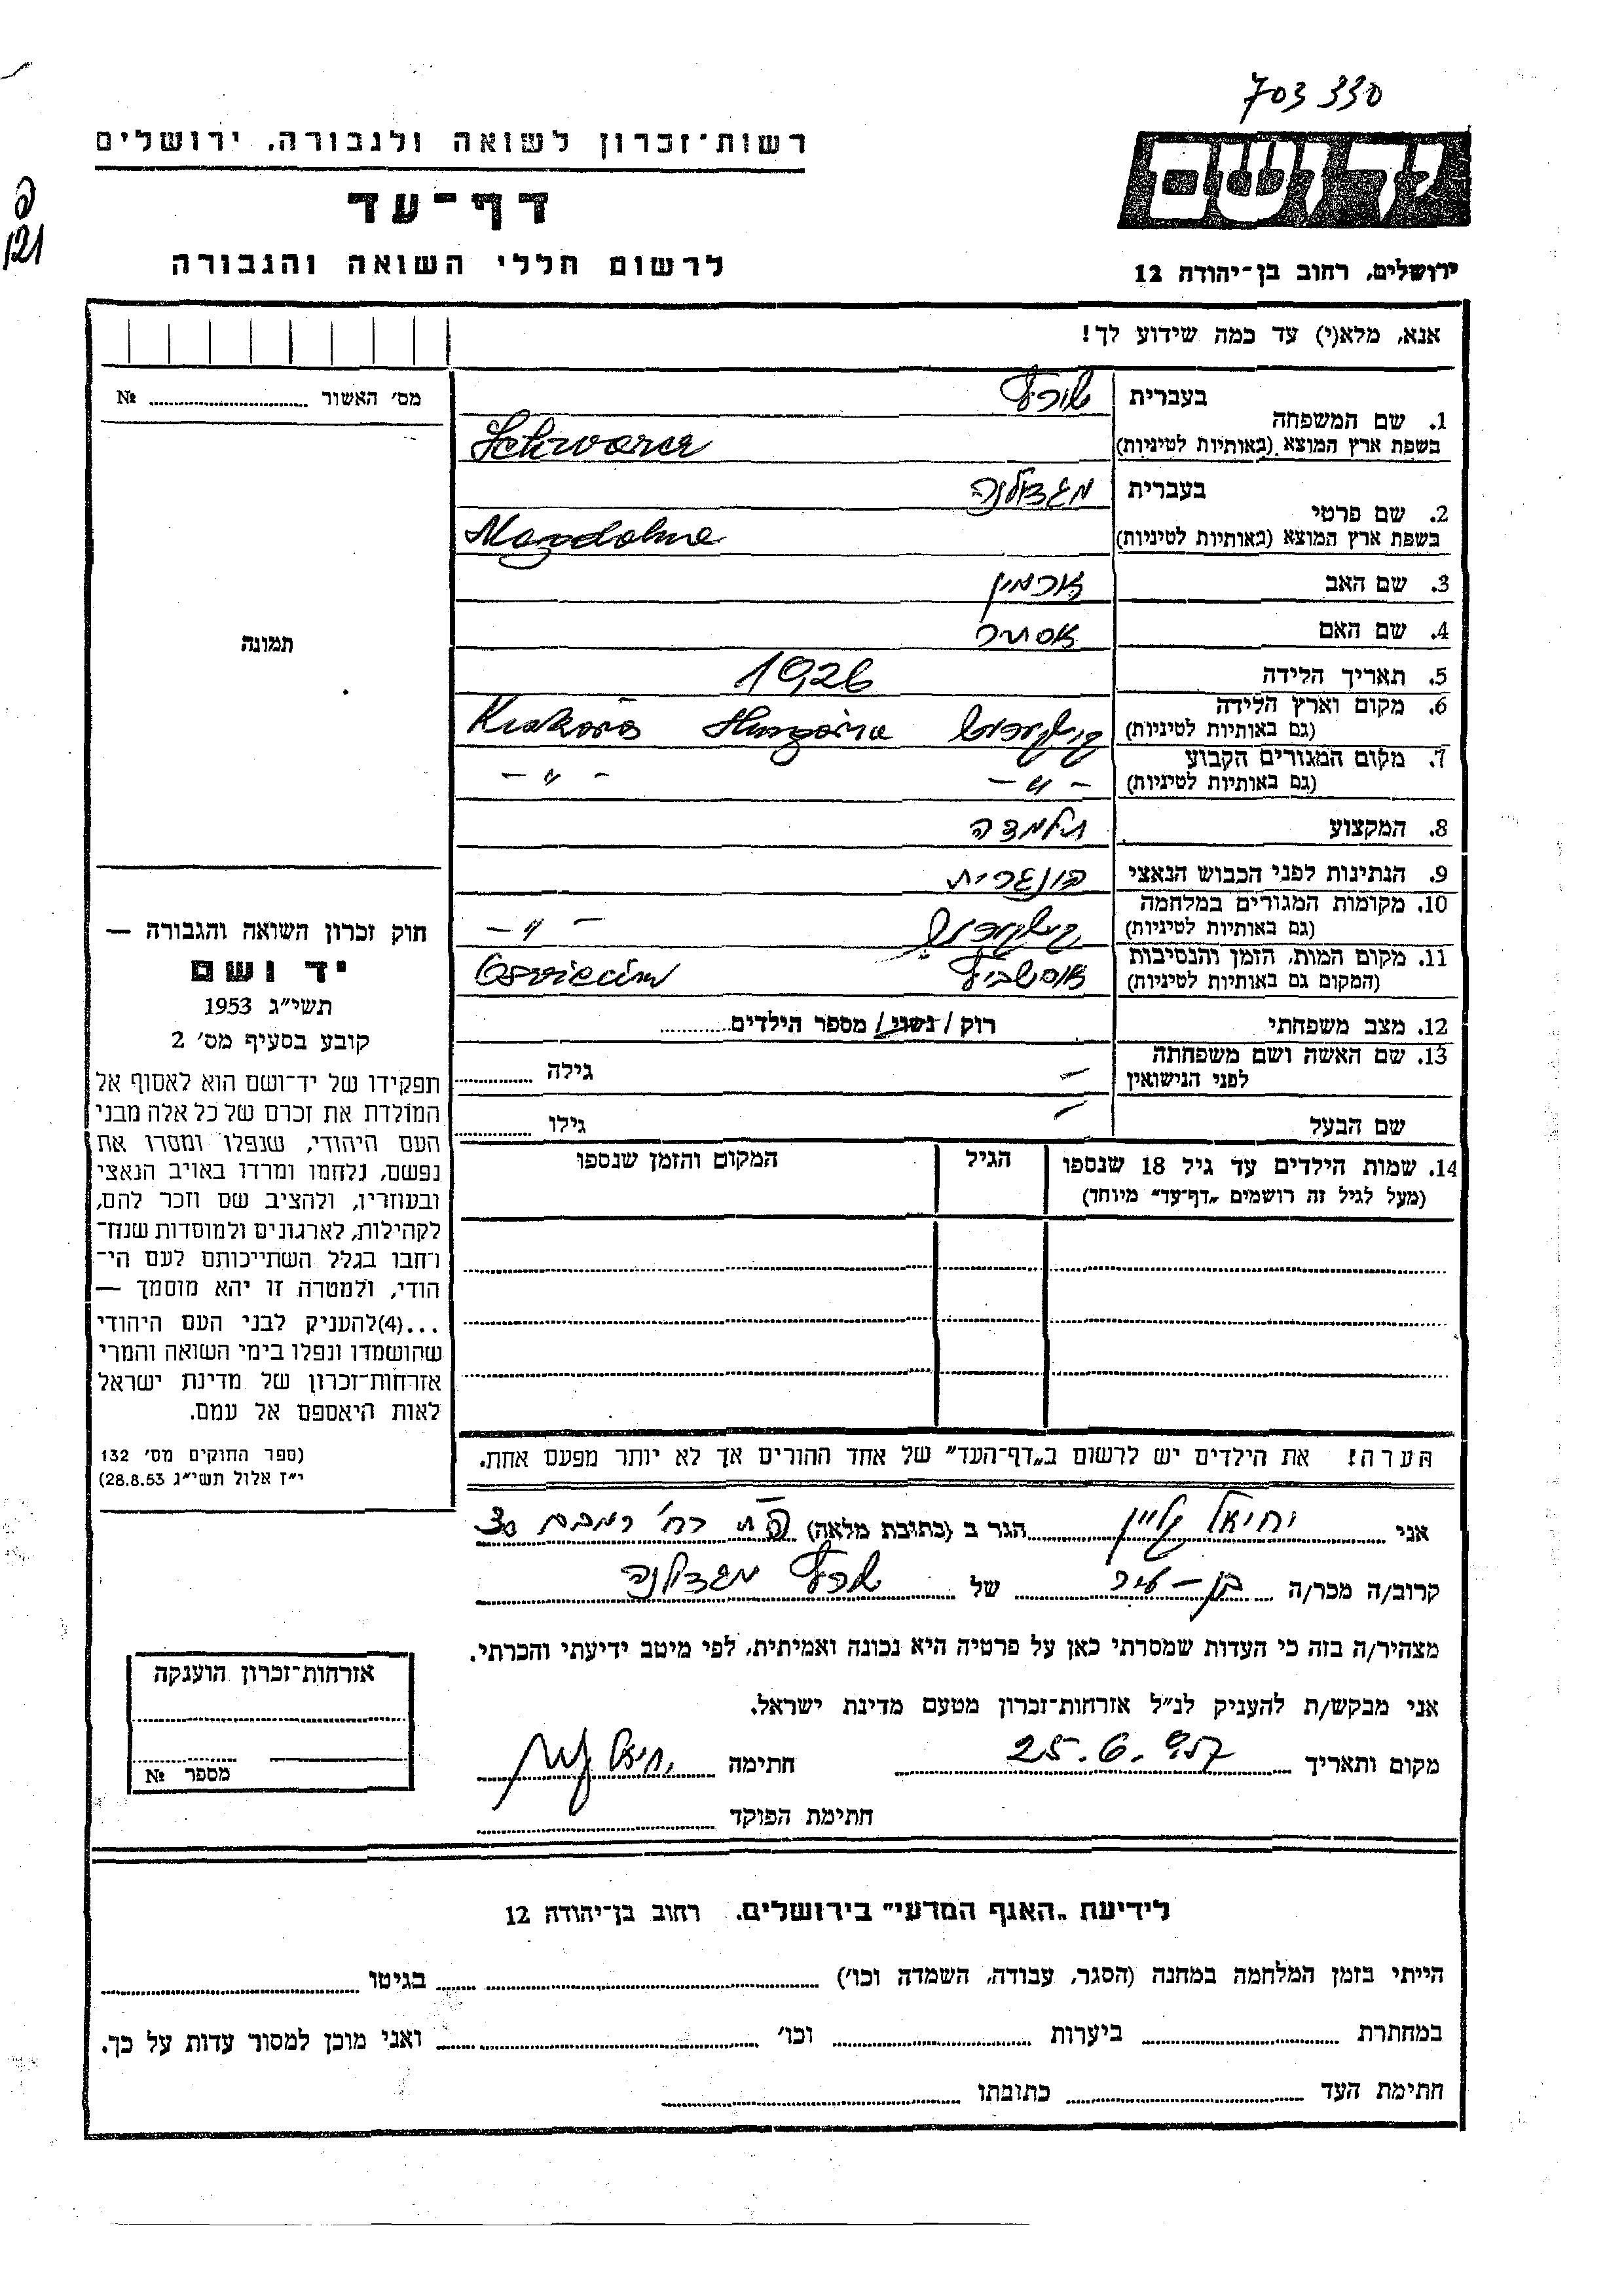 703 330
רשות־זכרון לשואה ולגבורה, ירושלים
יד ושם
דף־עד
121
לרשום חללי השואה והגבורה
ירושלים, רחוב בן־יהודה 12
אנא, מלא(י) עד כמה שידוע לך!
מס׳ האשור № ........
1. שם המשפחה בעברית שורץ
בשפת ארץ המוצא (באותיות לטיניות) Schwarcz
2. שם פרטי בעברית מגדולנה
בשפת ארץ המוצא (באותיות לטיניות) Magdolna
3. שם האב ארמין
4. שם האם אסתר
תמונה
5. תאריך הלידה 1926
6. מקום וארץ הלידה
(גם באותיות לטיניות) Hungária
7. מקום המגורים הקבוע
(גם באותיות לטיניות) – " – – " –
8. המקצוע תלמדה
9. הנתינות לפני הכבוש הנאצי הונגרית
10. מקומות המגורים במלחמה
(גם באותיות לטיניות) – " –
11. מקום המות, הזמן והנסיבות
(המקום גם באותיות לטיניות) אושביץ Osviecim
12. מצב משפחתי רוק / נשוי / מספר הילדים........
13. שם האשה ושם משפחתה
לפני הנישואין – גילה ........
שם הבעל – גילו ........
14. שמות הילדים עד גיל 18 שנספו הגיל המקום והזמן שנספו
(מעל לגיל זה רושמים „דף־עד״ מיוחד)
חוק זכרון השואה והגבורה —
יד ושם
תשי״ג 1953
קובע בסעיף מס׳ 2
תפקידו של יד־ושם הוא לאסוף אל
המולדת את זכרם של כל אלה מבני
העם היהודי, שנפלו ומסרו את
נפשם, נלחמו ומרדו באויב הנאצי
ובעוזריו, ולהציב שם וזכר להם,
לקהילות, לארגונים ולמוסדות שנח־
רחבו בגלל השתייכותם לעם הי־
הודי, ולמטרה זו יהא מוסמך —
...(4)להעניק לבני העם היהודי
שהושמדו ונפלו בימי השואה והמרי
אזרחות־זכרון של מדינת ישראל
לאות היאספם אל עמם.
(ספר החוקים מס׳ 132
י״ז אלול תשי״ג 28.8.53)
הערה! את הילדים יש לרשום ב„דף־העד״ של אחד ההורים אך לא יותר מפעם אחת.
אני יחיאל קליין הגר ב (כתובת מלאה) רח׳ רמבם 30
קרוב/ה מכר/ה בן – עיר של שורץ מגדולנה
מצהיר/ה בזה כי העדות שמסרתי כאן על פרטיה היא נכונה ואמיתית, לפי מיטב ידיעתי והכרתי.
אני מבקש/ת להעניק לנ״ל אזרחות־זכרון מטעם מדינת ישראל.
מקום ותאריך 25.6. חתימה יחיאל
חתימת הפוקד ........
אזרחות־זכרון הוענקה
מספר №
לידיעת „האגף המדעי״ בירושלים. רחוב בן־יהודה 12
הייתי בזמן המלחמה במחנה (הסגר, עבודה, השמדה וכו׳) ........ בגיטו ........
במחתרת ........ ביערות ........ וכו׳ ........ ואני מוכן למסור עדות על כך.
חתימת העד ........ כתובתו ........